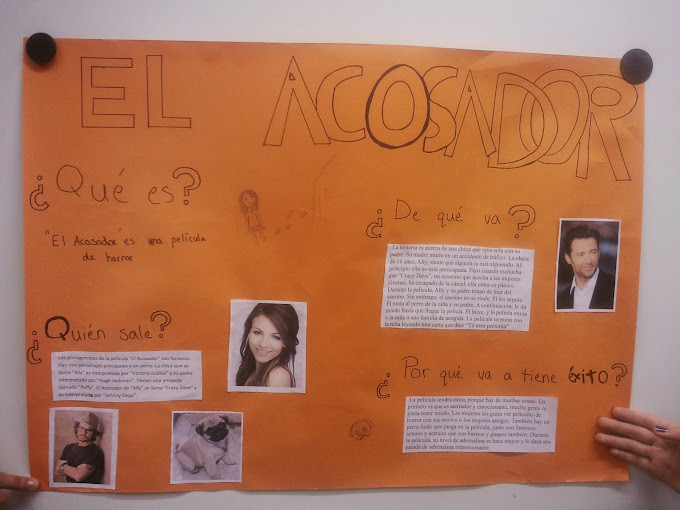 EL ACOSADOR
¿Qué es?
"El Acosador" es una película
de horror
¿Quién sale?
Los protagonistas de la película "El Acosador" son famosas.
Hay tres personajes principales y un perro. La chica que se
llama "Ally" es interpretada por "Victoria Justice" y su padre
interpretado por "Hugh Jackman". Tienen una
llamado "Fluffy". El Acosador de "Ally" se llama "Crazy Dave" y
es interpretado por "Johnny Depp".
¿De qué va?
La historia es acerca de una chica que vive sola con su
padre. Su madre murió en un accidente de tráfico. La chica
de 16 años, Ally, siente que alguien la está siguiendo. Al
principio ella no está preocupada. Pero cuando escucha
que "Crazy Dave", un asesino que acecha a las mujeres
jóvenes, ha escapado de la cárcel, ella entra en pánico.
Durante la película, Ally y su padre tratan de huir del
asesino. Sin embargo, el asesino no se rinde. Él les sigue.
Él mata al perro de la niña y su padre. A continuación, le da
miedo hasta que llegue la policía. Él huye, y la policía envía
a la niña a una familia de acogida. La película termina con
la niña leyendo una carta que dice "Tú eres próxima"
¿Por qué va a tiene éxito?
La película tendrá éxito, porque hay de muchas cosas. Lo
primero es que es aterrador y emocionante, mucha gente le
gusta tener miedo. Las mujeres les gusta ver películas de
horror con sus novios o los mejores amigos. También hay un
perro lindo que juega en la película, junto con famosos
actores y actrices que son buenos y guapos también. Durante
la película, su nivel de adrenalina se hace mayor y le dará una
patada de adrenalina impresionante.